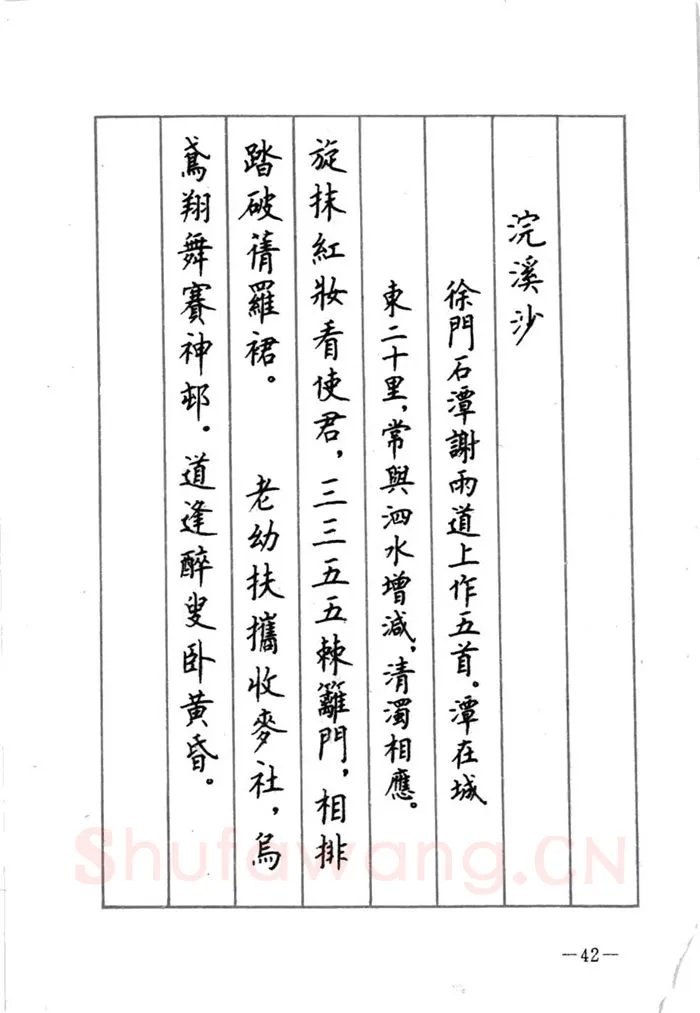 浣溪沙
徐門石潭謝雨道上作五首。潭在城
東二十里，常與泗水增減，清濁相應。
旋抹紅妝看使君，三三五五棘籬門，相排
踏破蒨羅裙。　老幼扶攜收麥社，烏
鳶翔舞賽神邨。道逢醉叟卧黃昏。
Shufawang.CN
—42—